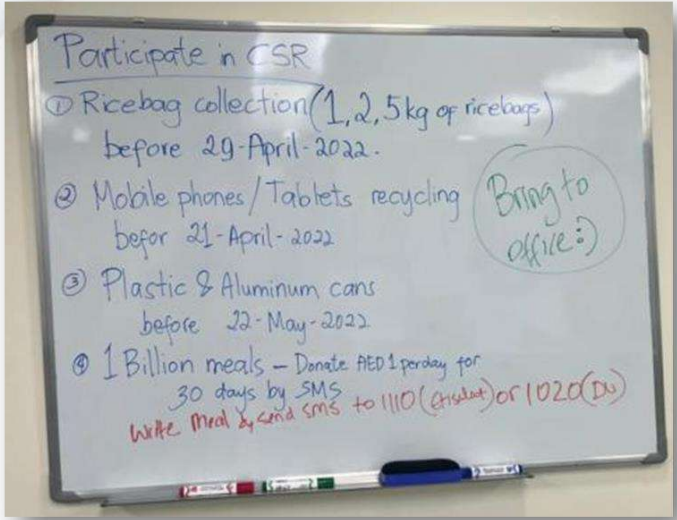 Participate in CSR
① Ricebag collection (1, 2, 5 kg of ricebags)
before 29-April-2022.
② Mobile phones / Tablets recycling
befor 21-April-2022
Bring to
office :)
③ Plastic & Aluminum cans
before 22-May-2022
④ 1 Billion meals - Donate AED 1 perday for
30 days by SMS
Write Meal & send sms to 1110 (Etisalat) or 1020 (Du)